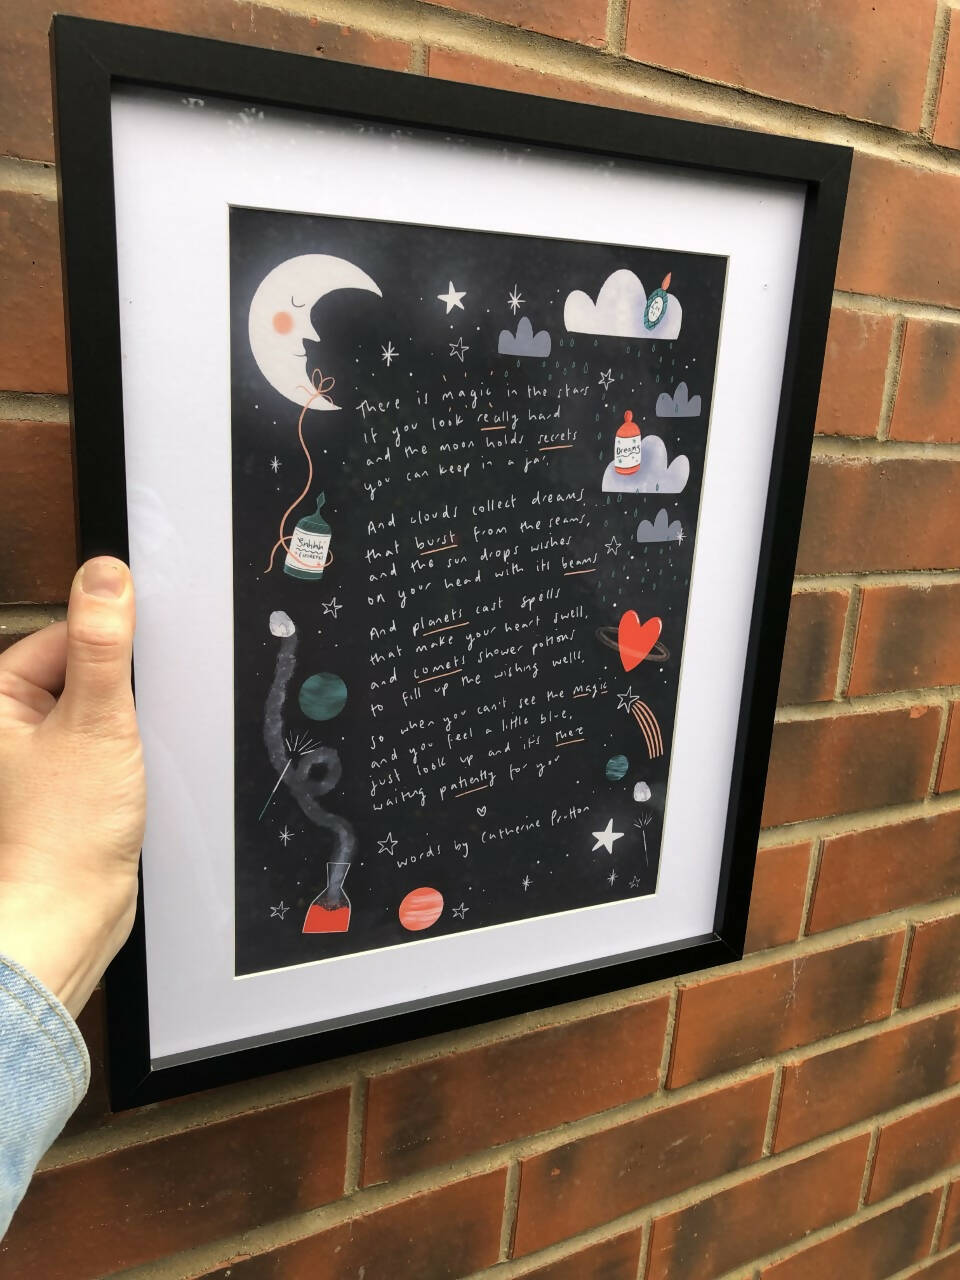 There is magic in the stars
If you look really hard
and the moon holds secrets
you can keep in a jar.
And clouds collect dreams
that burst from the seams,
and the sun drops wishes
on your head with its beams
And planets cast spells
that make your heart swell,
and comets shower potions
to fill up the wishing wells,
so when you can't see the magic
and you feel a little blue,
just look up and it's there
waiting patiently for you
words by Catherine Prutton
Dreams
Shhhh